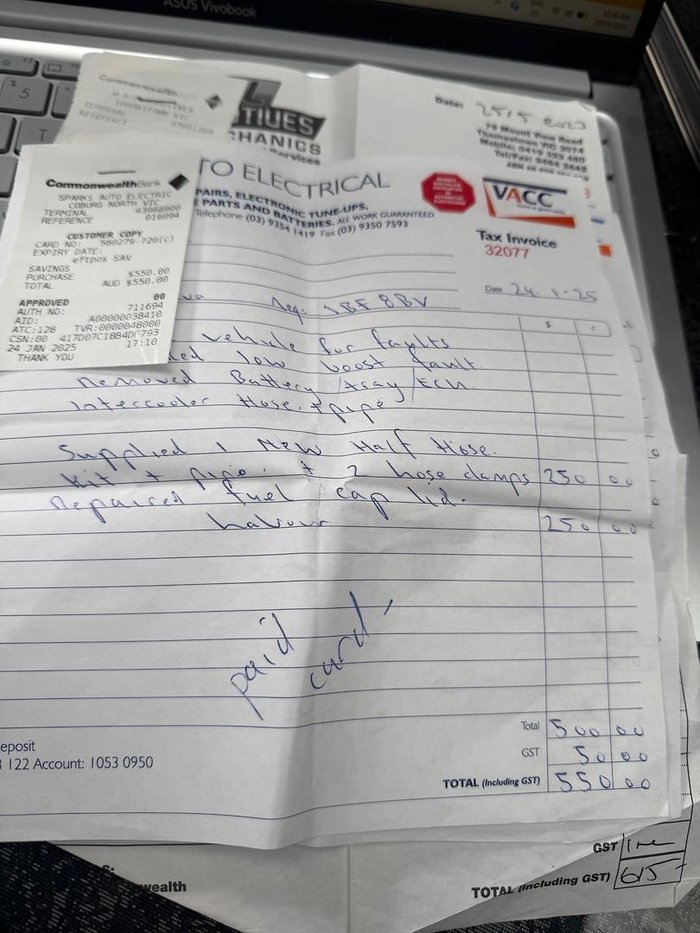 ASUS Vivobook
5
T
Commonwealth
TERMINAL
REFERENCE
TIUES
CHANICS
Services
Date: 25/5 2023
79 Mount View Road
Thomastown VIC 3074
Mobile: 0419 333 480
CommonwealthBank
SPARKS AUTO ELECTRIC
COBURG NORTH VIC
TERMINAL 43960000
REFERENCE 016094
CUSTOMER COPY
CARD NO: 560279-720(c)
EXPIRY DATE:
eftpos SAV
SAVINGS
PURCHASE $550.00
TOTAL AUD $550.00
APPROVED 00
AUTH NO: 711694
AID: A00000038410
ATC:128 TVR:0000048000
CSN:00 417D07C18B4DF793
24 JAN 2025 17:10
THANK YOU
TO ELECTRICAL
PAIRS, ELECTRONIC TUNE-UPS,
E PARTS AND BATTERIES. ALL WORK GUARANTEED
Telephone (03) 9354 1419 Fax (03) 9350 7593
VACC
Tax Invoice
32077
Date 24-1-25
Reg: 1BF8BV
$ c
vehicle for faults
low boost fault
Removed Battery / tray / ECU
Intercooler Hose + pipe
Supplied 1 New Half Hose
Kit + pipe + 2 hose clamps 250 00
Repaired fuel cap lid.
labour 250 00
paid
card
Total 500 00
GST 50 00
TOTAL (Including GST) 550 00
eposit
122 Account: 1053 0950
wealth
GST Inc
TOTAL (Including GST) 615-